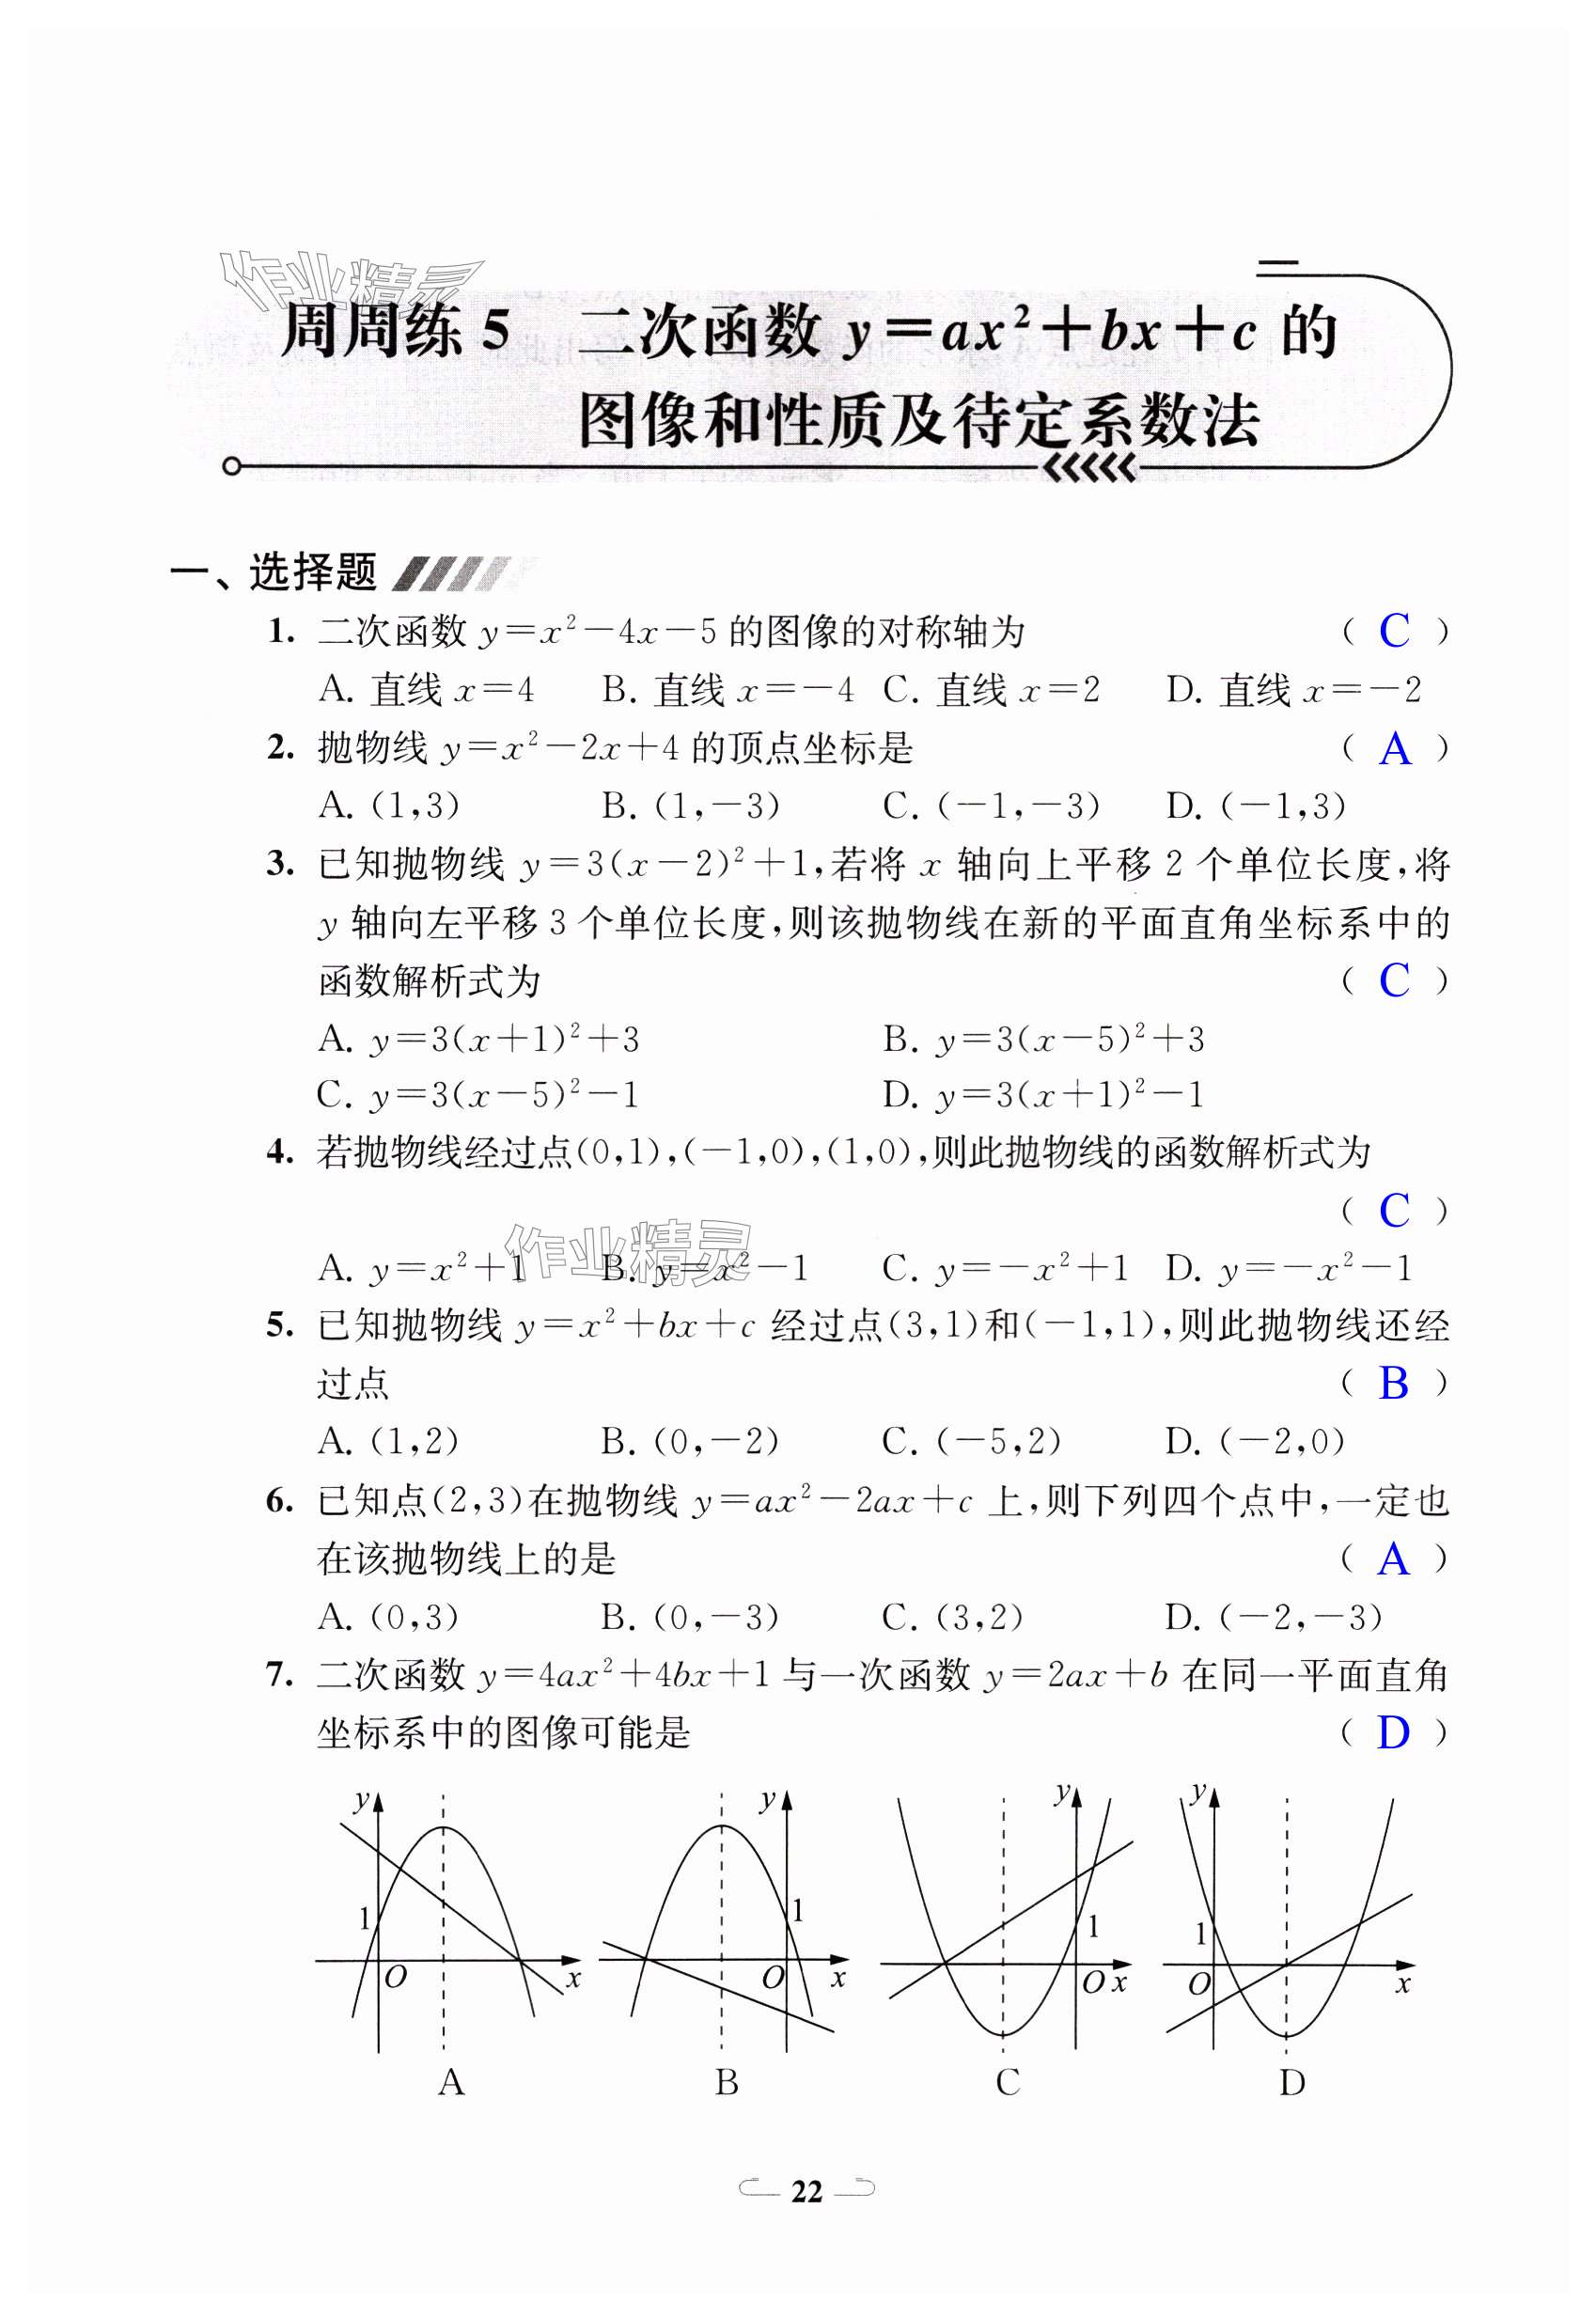 作业精灵
周周练 5 二次函数 y=ax²+bx+c 的
图像和性质及待定系数法
一、选择题
1. 二次函数 y=x²-4x-5 的图像的对称轴为 ( C )
A. 直线 x=4 B. 直线 x=-4 C. 直线 x=2 D. 直线 x=-2
2. 抛物线 y=x²-2x+4 的顶点坐标是 ( A )
A. (1,3) B. (1,-3) C. (-1,-3) D. (-1,3)
3. 已知抛物线 y=3(x-2)²+1,若将 x 轴向上平移 2 个单位长度,将
y 轴向左平移 3 个单位长度,则该抛物线在新的平面直角坐标系中的
函数解析式为 ( C )
A. y=3(x+1)²+3 B. y=3(x-5)²+3
C. y=3(x-5)²-1 D. y=3(x+1)²-1
4. 若抛物线经过点(0,1),(-1,0),(1,0),则此抛物线的函数解析式为
( C )
作业精灵
A. y=x²+1 B. y=x²-1 C. y=-x²+1 D. y=-x²-1
5. 已知抛物线 y=x²+bx+c 经过点(3,1)和(-1,1),则此抛物线还经
过点 ( B )
A. (1,2) B. (0,-2) C. (-5,2) D. (-2,0)
6. 已知点(2,3)在抛物线 y=ax²-2ax+c 上,则下列四个点中,一定也
在该抛物线上的是 ( A )
A. (0,3) B. (0,-3) C. (3,2) D. (-2,-3)
7. 二次函数 y=4ax²+4bx+1 与一次函数 y=2ax+b 在同一平面直角
坐标系中的图像可能是 ( D )
y y y y
1 1 1 1
O x O x O x O x
A B C D
22